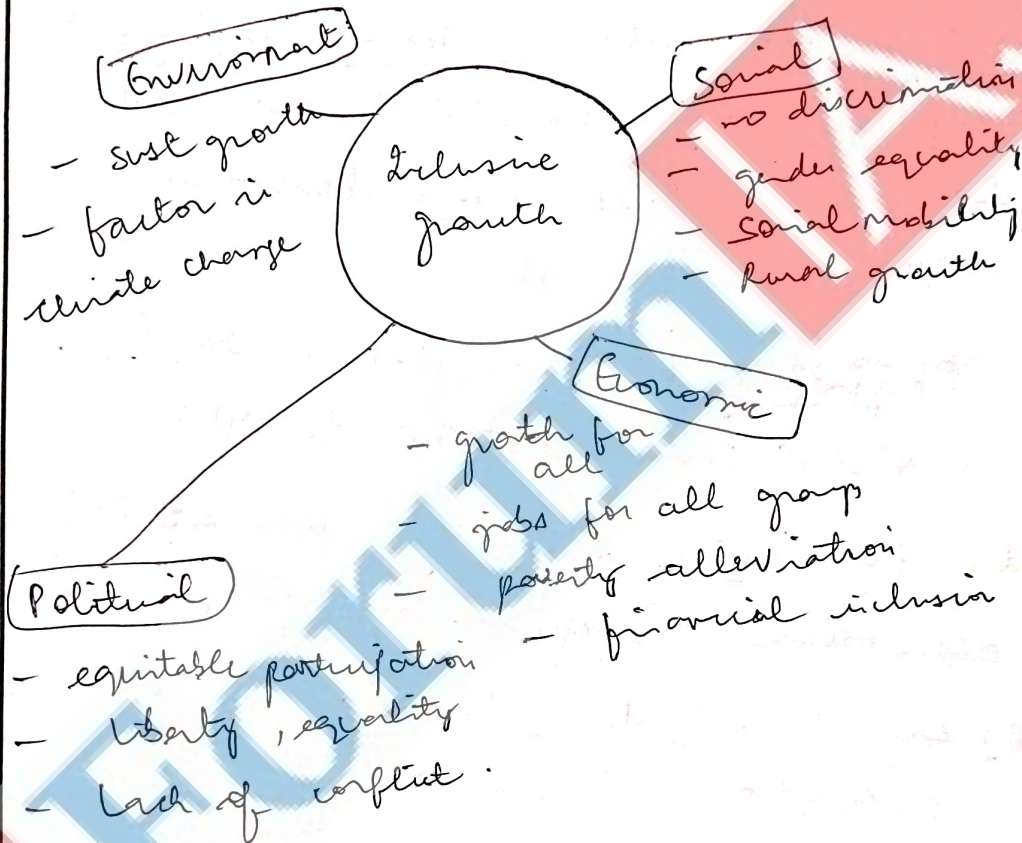 Inclusive
growth
Environment
- sust growth
- factor in
climate change
Social
- no discrimination
- gender equality
- Social mobility
- Rural growth
Economic
- growth for
all
- jobs for all groups
- poverty alleviation
- financial inclusion
Political
- equitable participation
- liberty, equality
- Lack of conflict.
Forum IA